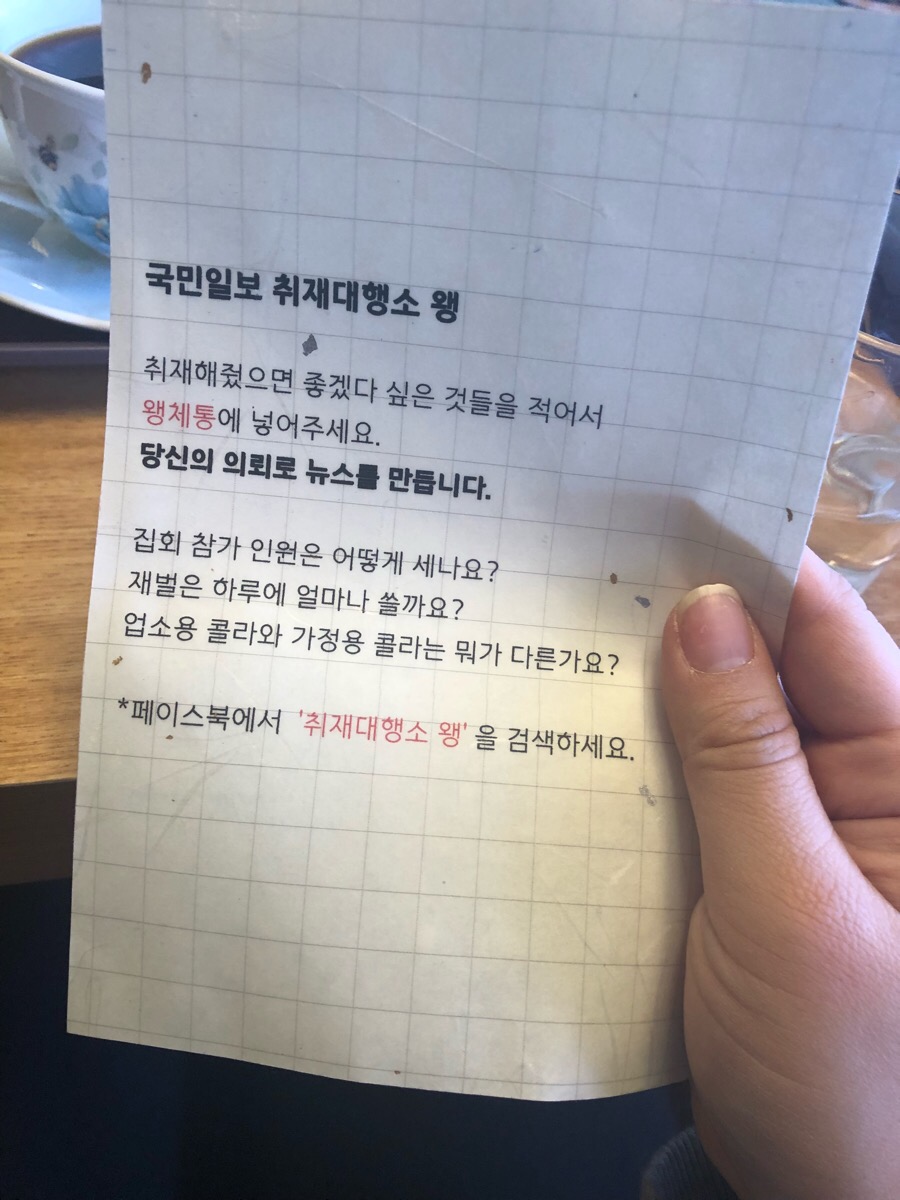 국민일보 취재대행소 왱
취재해줬으면 좋겠다 싶은 것들을 적어서
왱체통에 넣어주세요.
당신의 의뢰로 뉴스를 만듭니다.
집회 참가 인원은 어떻게 세나요?
재벌은 하루에 얼마나 쓸까요?
업소용 콜라와 가정용 콜라는 뭐가 다른가요?
*페이스북에서 '취재대행소 왱' 을 검색하세요.